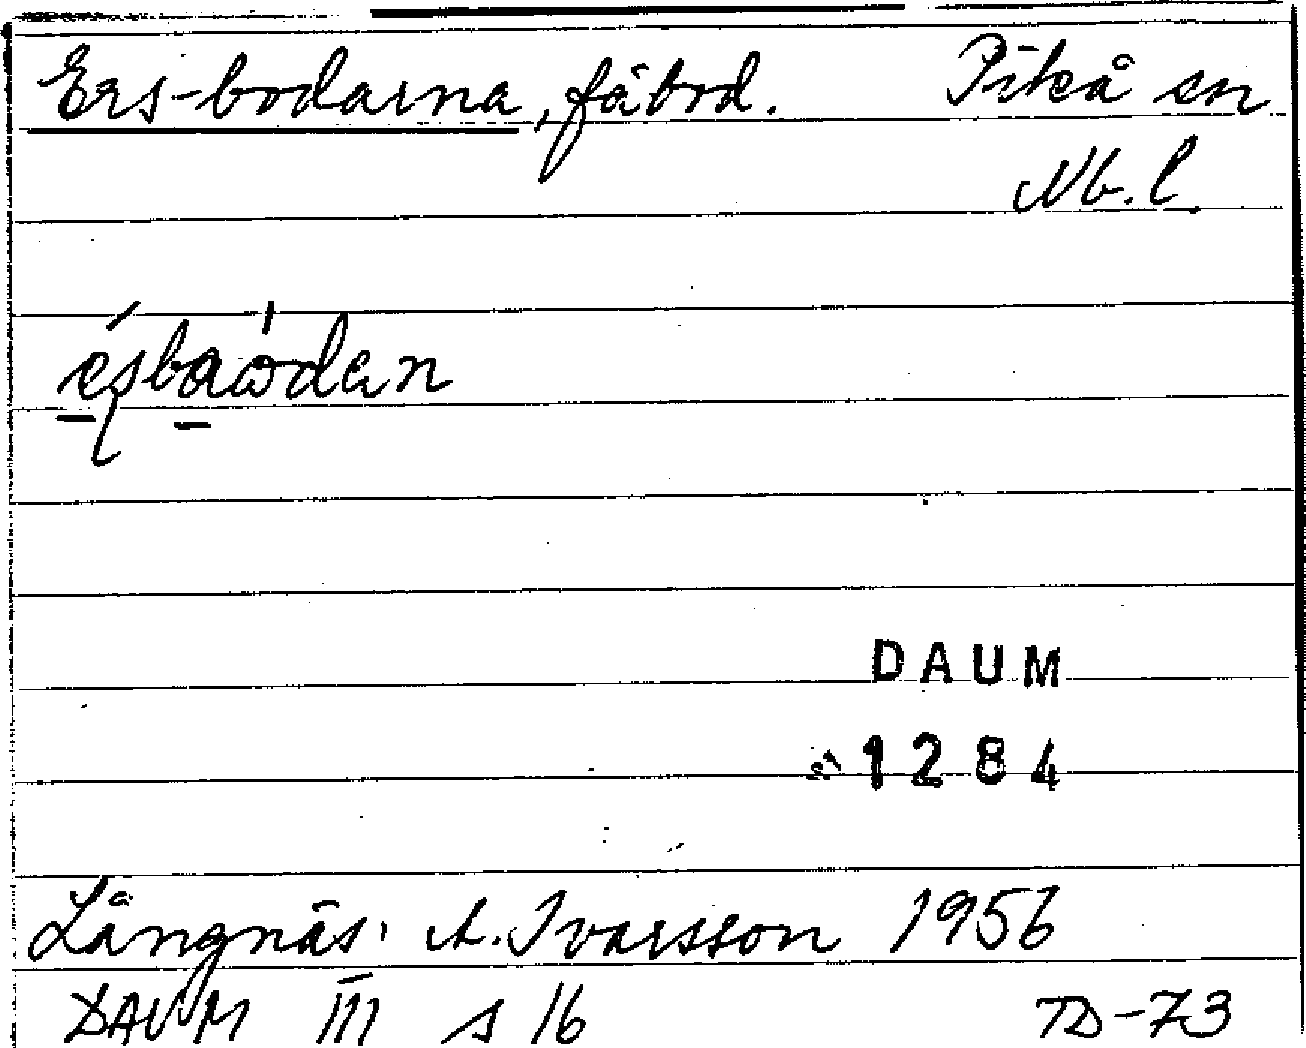 Ers-bodarna, fäbod. Piteå sn
Nb. l.
DAUM
1284
Långnäs. A. Ivarsson 1956
DAUM III s 16 TD-73